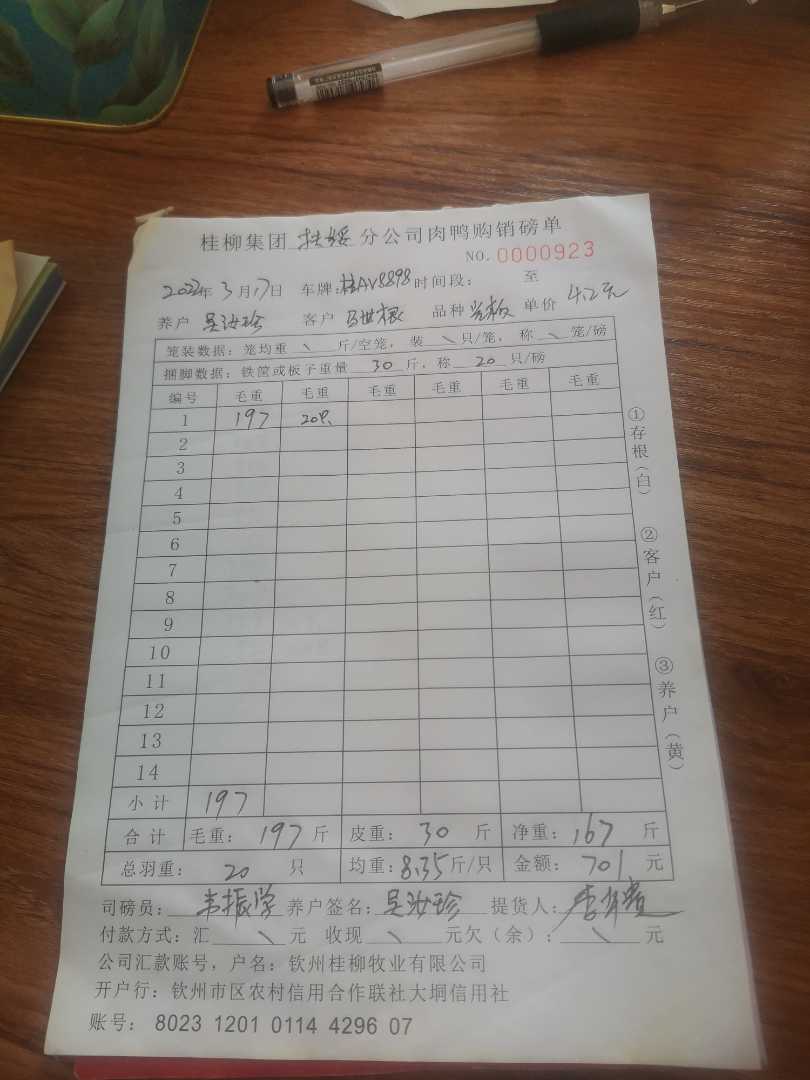 桂柳集团 扶绥 分公司肉鸭购销磅单
NO. 0000923
2022年 3月17日 车牌:桂AV8898 时间段: 至
养户 吴汝珍 客户 马世根 品种 光板 单价 4.2元
笼装数据:笼均重 \ 斤/空笼,装 \ 只/笼,称 \ 笼/磅
捆脚数据:铁筐或板子重量 30 斤,称 20 只/磅
编号 毛重 毛重 毛重 毛重 毛重 毛重
1 197 20只
2
3
4
5
6
7
8
9
10
11
12
13
14
小计 197
合计 毛重: 197 斤 皮重: 30 斤 净重: 167 斤
总羽重: 20 只 均重: 8.35 斤/只 金额: 701 元
司磅员: 韦振学 养户签名: 吴汝珍 提货人:
付款方式:汇 \ 元 收现 \ 元欠(余): \ 元
公司汇款账号,户名:钦州桂柳牧业有限公司
开户行:钦州市区农村信用合作联社大垌信用社
账号: 8023 1201 0114 4296 07
①存根(白)
②客户(红)
③养户(黄)